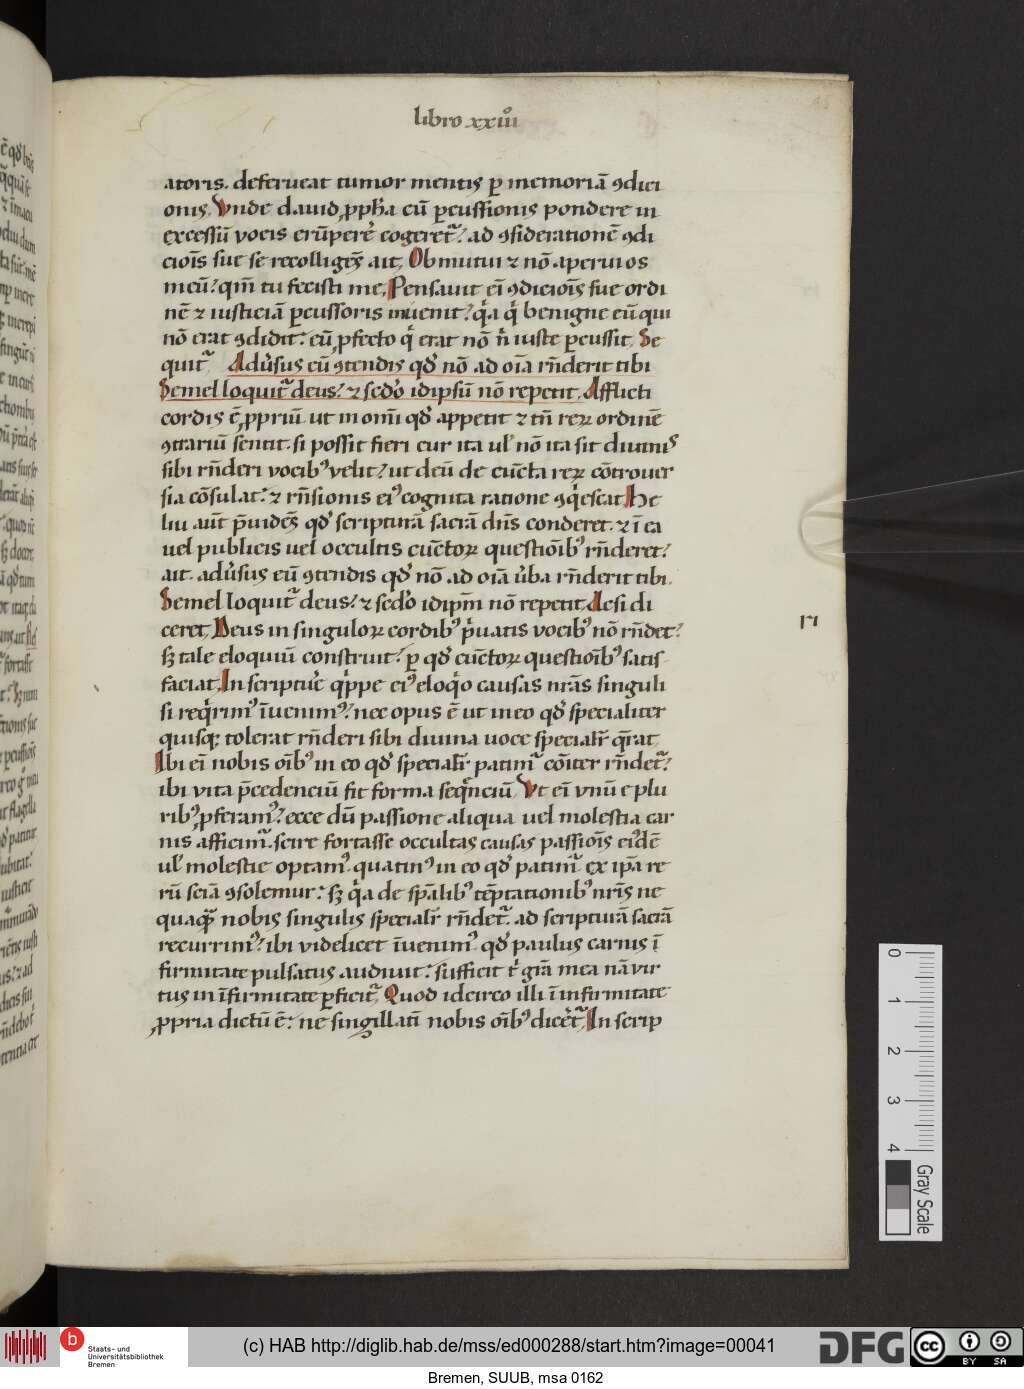 libro xxiii͛
atoris. deferueat tumor mentis ꝑ memoriā ꝯdici
onis. Vnde dauid ꝓph̄a cū ꝑcussionis pondere in
excessū vocis erūpere᷑ cogeret᷑: ad ꝯsideratiōnē ꝯdi
ciōis sue se recolligēs ait. Obmutui ⁊ nō aperui os
meū: qm̄ tu fecisti me. Pensauit ei̅ ꝯdiciōis sue ordi
nē ⁊ iusticiā ꝑcussoris inuenit: qͥa qͥ benigne eū qui
nō erat ꝯdidit: cū ꝓfecto qͥ erat nō n̄ iuste ꝑcussit. Se
quit᷑ Adu᷑sus eū ꝯtendis qd̓ nō ad oīa rn̄derit tibi
Semel loquit᷑ deus: ⁊ scd̓o idipsū nō repetit. Afflicti
cordis ē ꝓpriū ut in om̄i qd̓ appetit ⁊ tn̄ reꝝ ordinē
ꝯtrariū sentit. si possit fieri cur ita ul̓ nō ita sit diuinis
sibi rn̄deri vocibꝰ velit: ut deū de cūcta reꝝ cōtrouer
sia cōsulat: ⁊ rn̄sionis eiꝰ cognita ratione ꝯqͥescat. He
liu aut̄ p̄uidēs qd̓ scripturā sacrā dn̄s conderet. ⁊ ī ea
uel publicis uel occultis cūctoꝝ questiōibꝰ rn̄deret:
ait. adu᷑sus eū ꝯtendis qd̓ nō ad oīa u᷑ba rn̄derit tibi.
Semel loquit᷑ deus: ⁊ scd̓o idip̄m nō repetit. Acsi di
ceret. Deus in singuloꝝ cordibꝰ pͥuatis vocibꝰ nō rn̄det:
sꝫ tale eloquiū construit: ꝑ qd̓ cūctoꝝ questiōibꝰ satis
faciat. In scripture qͥppe eiꝰ eloqͥo causas nr̄as singuli
si reqͥrimꝰ īuenimꝰ: nec opus ē ut in eo qd̓ specialiter
quisqꝫ tolerat rn̄deri sibi diuina uoce specialr̄ qͣrat
Ibi ei̅ nobis oībꝰ in eo qd̓ specialr̄ patimͬ cōiter rn̄det᷑:
ibi vita p̄cedenciū fit forma seqͥnciū Vt ei̅ vnū e plu
ribꝰ ꝓferamꝰ: ecce dū passione aliqua uel molestia car
nis afficimͬ. scire fortasse occultas causas passiōis eiꝰdē
ul̓ molestie optamꝰ. quatinꝰ in eo qd̓ patimͬ ex ip̄a re
rū sciā ꝯsolemur: sꝫ qͥa de sp̄alibꝰ tēptationibꝰ nr̄is ne
quaqͣꝫ nobis singulis specialr̄ rn̄det᷑. ad scripturā sacrā
recurrimꝰ: ibi videlicet īuenimꝰ qd̓ paulus carnis ī
firmitate pulsatus audiuit: sufficit tͥ gr̄a mea nā vir
tus in īfirmitate ꝑficit᷑. Quod idcirco illi ī infirmitate
ꝓpria dictū ē: ne singillatī nobis oībꝰ dicēt᷑. In scrip
0
1
2
3
4
Gray Scale
b
Staats- und
Universitätsbibliothek
Bremen
(c) HAB http://diglib.hab.de/mss/ed000288/start.htm?image=00041
DFG
cc
BY SA
Bremen, SUUB, msa 0162